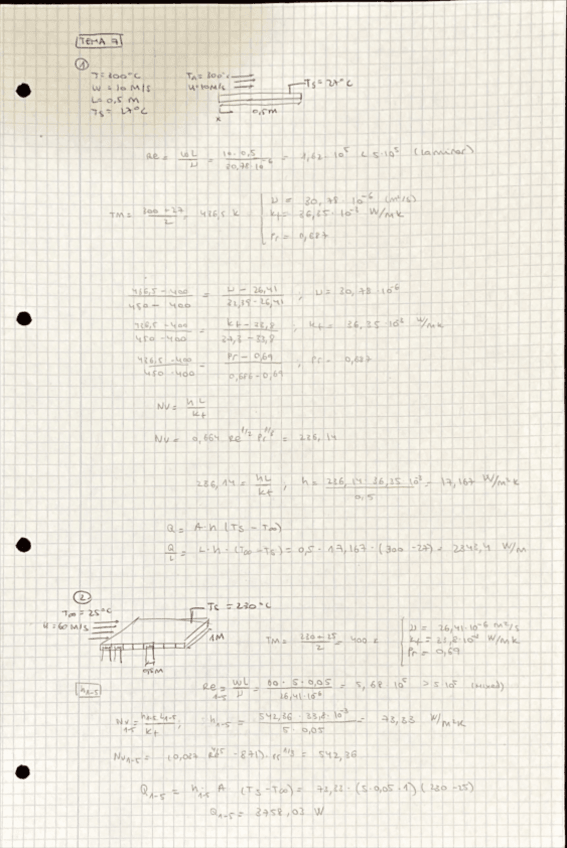 TEMA 7
①
T = 300°C
W = 10 M/S
L = 0,5 M
TS = 27°C
U = 10 M/S
TS = 27°C
x
0,5M
Re = WL/ν = 10·0,5/30,78·10⁻⁶ = 1,62·10⁵ < 5·10⁵ (Laminar)
TM = 300+27/2 = 436,5 K
ν = 30,78·10⁻⁶ (m²/s)
Kf = 36,35·10⁻³ W/mK
Pr = 0,687
436,5-400/450-400 = ν-26,41/32,39-26,41 , ν = 30,78·10⁻⁶
436,5-400/450-400 = Kf-33,8/37,3-33,8 , Kf = 36,35·10⁻³ W/mK
436,5-400/450-400 = Pr-0,69/0,686-0,69 , Pr = 0,687
NU = hL/Kf
NU = 0,664 Re^1/2 Pr^1/3 = 236,14
236,14 = hL/Kf , h = 236,14·36,35·10⁻³/0,5 = 17,167 W/m²K
Q = A·h (TS - T∞)
Q/L = L·h·(T∞-TS) = 0,5·17,167·(300-27) = 2343,4 W/m
②
T∞ = 25°C
TS = 230°C
U = 60 M/S
1M
TM = 230+25/2 = 400 K
ν = 26,41·10⁻⁶ m²/s
Kf = 33,8·10⁻³ W/mK
Pr = 0,69
h1-5
Re1-5 = WL/ν = 60·5·0,05/26,41·10⁻⁶ = 5,68·10⁵ > 5·10⁵ (Mixed)
h1-5 = 542,36·33,8·10⁻³/5·0,05 = 73,33 W/m²K
NU1-5 = (0,037 Re^4/5 - 871)·Pr^1/3 = 542,36
Q1-5 = h1-5 A (TS-T∞) = 73,33·(5·0,05·1)(230-25)
Q1-5 = 3758,03 W